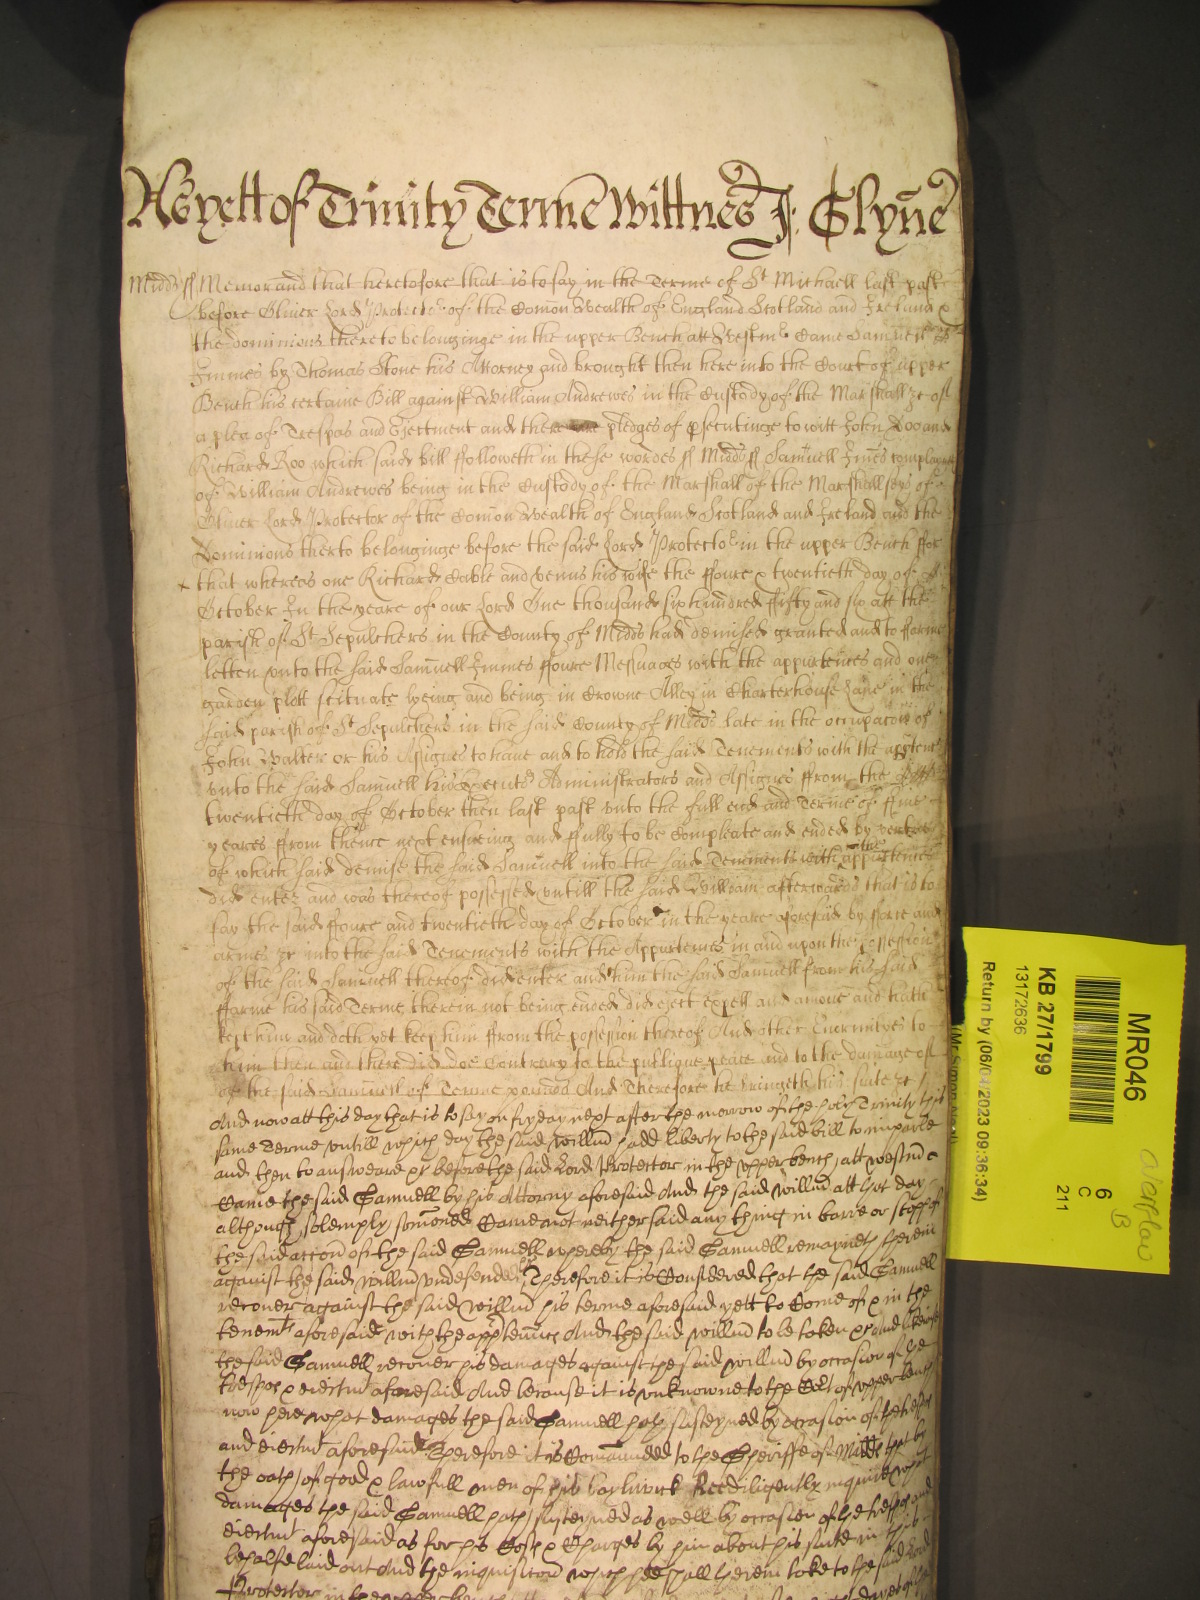 As yett of Trinity Terme Wittnes J: Glynne
Midds ss Memorand that heretofore that is to say in the Terme of St Michaell last past
before Oliver Lord Protector of the Comon Wealth of England Scotland and Ireland &
the dominions thereto belonginge in the upper Bench att Westmr Came Samuell
Immes by Thomas Stone his Attorney and brought then here into the Court of upper
Bench his certaine Bill against William Andrewes in the Custody of the Marshall &c of
a plea of Trespas and Ejectment and there are pledges of prosecutinge to witt John Doo and
Richard Roo which said bill ffolloweth in these wordes ss Midds ss Samuell Immes complaynes
of William Andrewes being in the Custody of the Marshall of the Marshallsey of
Oliver Lord Protector of the Comon Wealth of England Scotland and Ireland and the
Dominions therto belonginge before the said Lord Protector in the upper Bench ffor
that whereas one Richard Cable and Venus his wife the ffoure & twentieth day of
October In the yeare of our Lord One thousand six hundred ffifty and six att the
parish of St Sepulchers in the County of Midds had demised granted and to ffarme
letten unto the said Samuell Immes ffoure Messuages with the appurtences and one
garden plott scituate lyeing and being in Crowne Alley in Charterhouse Lane in the
said parish of St Sepulchers in the said County of Midds late in the occupacon of
John Walter or his Assignes to have and to hold the said Tenements with the apptences
unto the said Samuell his Executors Administrators and Assignes ffrom the
twentieth day of October then last past unto the full end and Terme of ffive
yeares ffrom thence next ensueing and ffully to be Compleate and ended by vertue
of which said demise the said Samuell into the said Tenements with the appurtences
did enter and was thereof possessed untill the said William afterwards that is to
say the said ffoure and twentieth day of October in the yeare aforesaid by fforce and
armes &c into the said Tenements with the Appurtences in and upon the possession
of the said Samuell thereof did enter and him the said Samuell from his said
ffarme his said Terme therein not being ended did eject expell and amove and hath
kept him and doth yet keep him ffrom the possession thereof And other Enormityes to
him then and there did doe Contrary to the publique peace and to the damage of
of the said Samuell of Tenne pounds And Therefore he bringeth his suite &c
And now att this day that is to say on fryday next after the morrow of the holy Trinity this
same Terme untill which day the said Willm hadd liberty to the said bill to imparle
and then to answeare &c before the said Lord Protector in the upper bench att westm
Came the said Samuell by his Attorny aforesaid And the said Willm att that day
although solemply somoned Came not neither said any thing in barre or stopp of
the said accon of the said Samuell whereby the said Samuell remayneth therein
against the said Willm undefended Therefore it is Considered that the said Samuell
recover against the said Willm his terme aforesaid yett to Come of & in the
tenemts aforesaid with the apptennces And the said Willm to be taken &c And likewise
the said Samuell recover his damages against the said Willm by occasion of the
trespas & eiectmt aforesaid And because it is unknowne to the Cort of upper bench
now here what damages the said Samuell hath susteyned by occasion of the trespas
and eiectmt aforesaid Therefore it is Comaunded to the Sheriffe of Midds that by
the oath of good & lawfull men of his baylywick hee diligently inquire what
damages the said Samuell hath susteyned as well by occasion of the trespas and
eiectmt aforesaid as for his Costs & Charges by him about his suite in this
behalfe laid out And the inquisicon which hee shall therein take to the said Lord
Protector in the upper bench
MR046
KB 27/1799
13172636
Return by (06/04/2023 09:36:34)
6
C
211
B